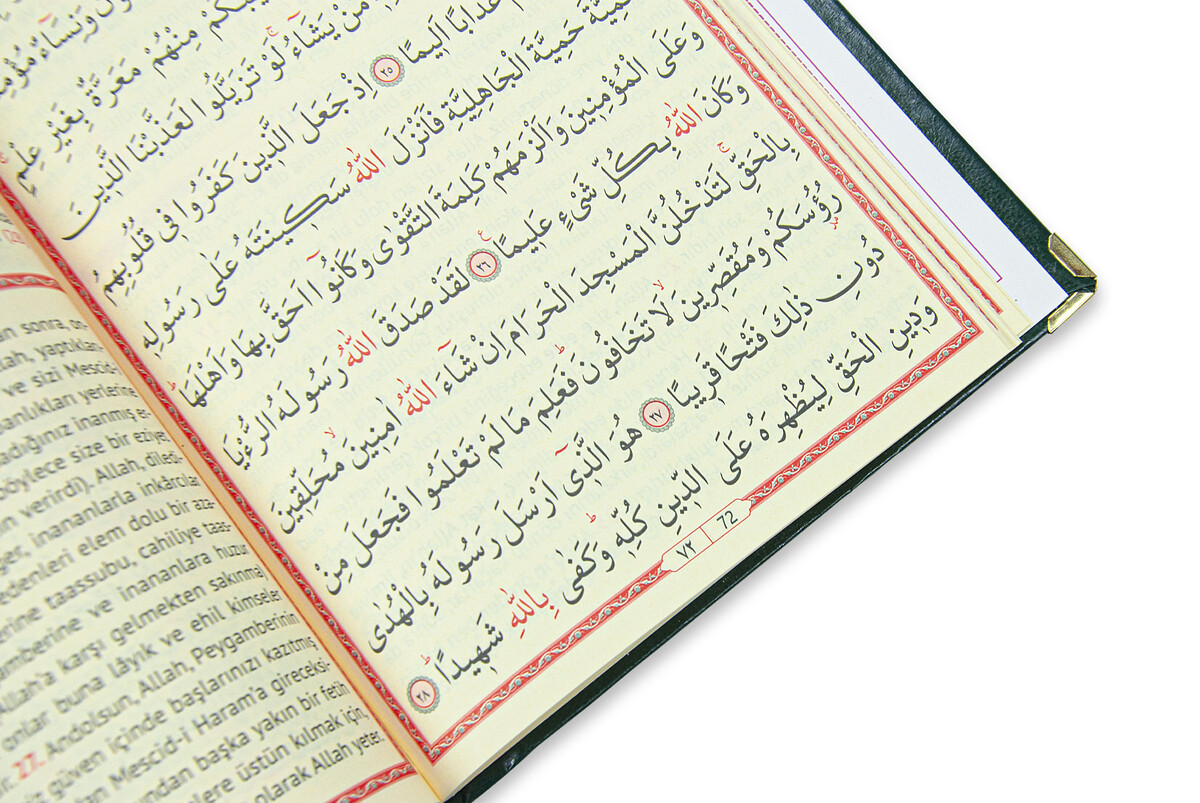 وَنِسَٓاءٌ
مِنْهُمْ مَعَرَّةٌ بِغَيْرِ عِلْمٍۚ
مَنْ يَشَٓاءُۚ لَوْ تَزَيَّلُوا لَعَذَّبْنَا الَّذ۪ينَ
عَذَابًا اَل۪يمًا ﴿٢٥﴾ اِذْ جَعَلَ الَّذ۪ينَ كَفَرُوا ف۪ي قُلُوبِهِمُ
حَمِيَّةَ الْجَاهِلِيَّةِ فَاَنْزَلَ اللّٰهُ سَك۪ينَتَهُ عَلٰى رَسُولِه۪
وَعَلَى الْمُؤْمِن۪ينَ وَاَلْزَمَهُمْ كَلِمَةَ التَّقْوٰى وَكَانُٓوا اَحَقَّ بِهَا وَاَهْلَهَاۜ
وَكَانَ اللّٰهُ بِكُلِّ شَيْءٍ عَل۪يمًا ﴿٢٦﴾ لَقَدْ صَدَقَ اللّٰهُ رَسُولَهُ الرُّءْيَا
بِالْحَقِّۚ لَتَدْخُلُنَّ الْمَسْجِدَ الْحَرَامَ اِنْ شَٓاءَ اللّٰهُ اٰمِن۪ينَۙ مُحَلِّق۪ينَ
رُؤُ۫سَكُمْ وَمُقَصِّر۪ينَۙ لَا تَخَافُونَۜ فَعَلِمَ مَا لَمْ تَعْلَمُوا فَجَعَلَ مِنْ
دُونِ ذٰلِكَ فَتْحًا قَر۪يبًا ﴿٢٧﴾ هُوَ الَّذ۪ٓي اَرْسَلَ رَسُولَهُ بِالْهُدٰى
وَد۪ينِ الْحَقِّ لِيُظْهِرَهُ عَلَى الدّ۪ينِ كُلِّه۪ۜ وَكَفٰى بِاللّٰهِ شَه۪يدًاۜ ﴿٢٨﴾
٧٢ 72
sonra,
yaptıkları
ve sizi Mescid-i
yerlerine
inanmış er-
böylece size bir eziyet
verirdi). Allah, diledi-
inananlarla inkârcılar
edenleri elem dolu bir aza-
taassubu, cahiliye taas-
ve inananlara huzur
karşı gelmekten sakınma
onlar buna lâyık ve ehil kimseler
27. Andolsun, Allah, Peygamberinin
güven içinde başlarınızı kazıtmış
Mescid-i Haram'a gireceksi-
başka yakın bir fetih
üstün kılmak için,
olarak Allah yeter.